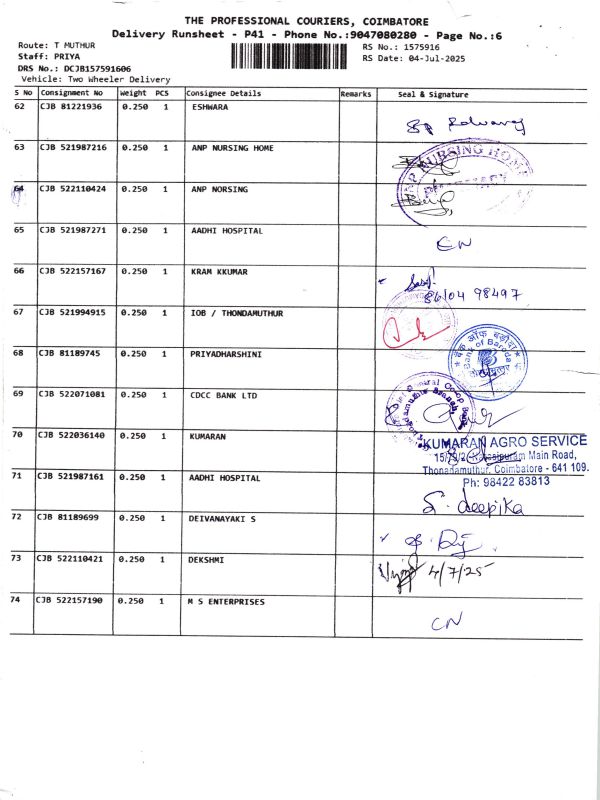 THE PROFESSIONAL COURIERS, COIMBATORE
Delivery Runsheet - P41 - Phone No.:9047080280 - Page No.:6
Route: T MUTHUR
RS No.: 1575916
Staff: PRIYA
RS Date: 04-Jul-2025
DRS No.: DCJB157591606
Vehicle: Two Wheeler Delivery
S No Consignment No Weight PCS Consignee Details Remarks Seal & Signature
62 CJB 81221936 0.250 1 ESHWARA
63 CJB 521987216 0.250 1 ANP NURSING HOME
NURSING HOME
64 CJB 522110424 0.250 1 ANP NORSING
65 CJB 521987271 0.250 1 AADHI HOSPITAL
CN
66 CJB 522157167 0.250 1 KRAM KKUMAR
86104 98497
67 CJB 521994915 0.250 1 IOB / THONDAMUTHUR
68 CJB 81189745 0.250 1 PRIYADHARSHINI
बैंक ऑफ़ बड़ौदा
Bank of Baroda
69 CJB 522071081 0.250 1 CDCC BANK LTD
70 CJB 522036140 0.250 1 KUMARAN
KUMARAN AGRO SERVICE
Main Road,
Thondamuthur, Coimbatore - 641 109.
Ph: 98422 83813
71 CJB 521987161 0.250 1 AADHI HOSPITAL
S. deepika
72 CJB 81189699 0.250 1 DEIVANAYAKI S
73 CJB 522110421 0.250 1 DEKSHMI
4/7/25
74 CJB 522157190 0.250 1 M S ENTERPRISES
CN